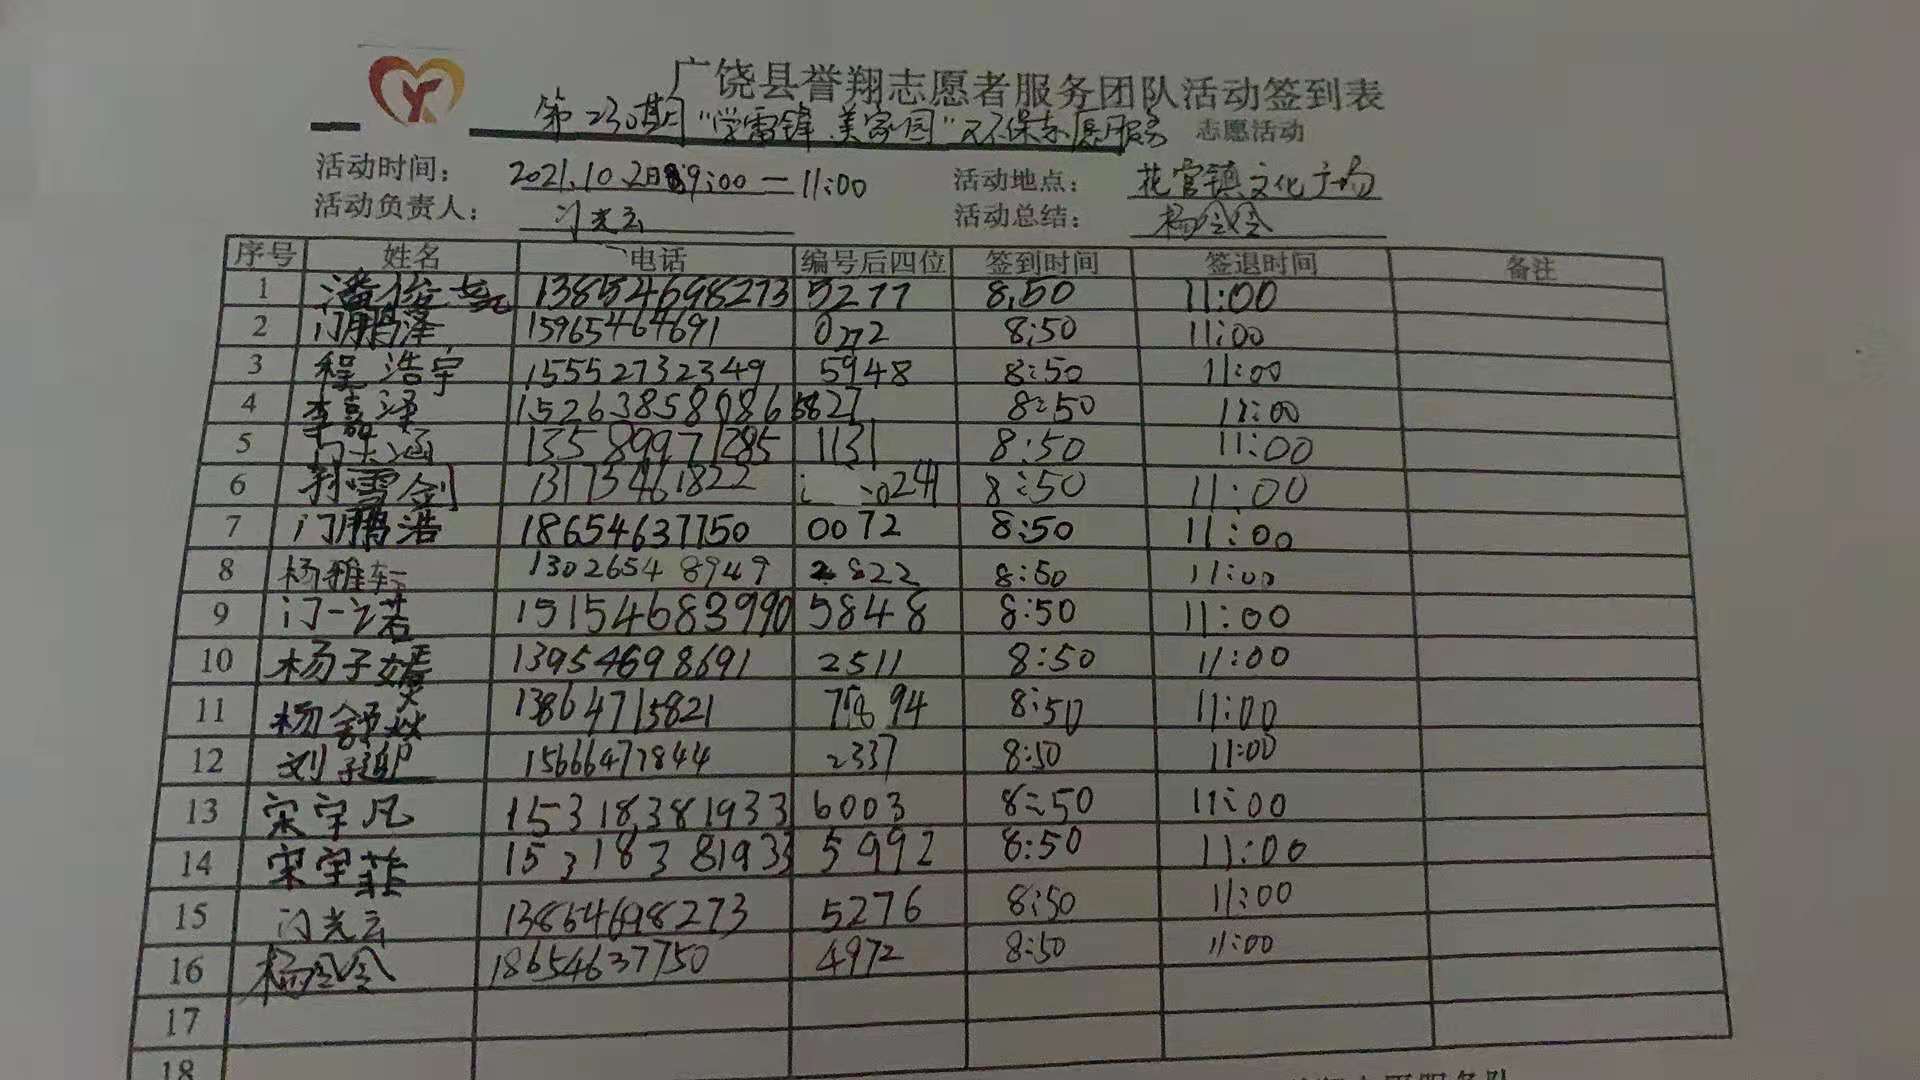 广饶县誉翔志愿者服务团队活动签到表
第230期"学雷锋 美家园"环保志愿服务 志愿活动
活动时间： 2021.10.2日9:00—11:00 活动地点： 花官镇文化广场
活动负责人： 门光云 活动总结：
序号 姓名 电话 编号后四位 签到时间 签退时间 备注
1 13854698273 5277 8:50 11:00
2 门鹏泽 15965464691 0272 8:50 11:00
3 程浩宇 15552732349 5948 8:50 11:00
4 李嘉泽 15263858086 8:50 11:00
5 13589971285 1131 8:50 11:00
6 13175461822 8:50 11:00
7 门鹏浩 18654637750 0072 8:50 11:00
8 杨雅轩 13026548949 2822 8:50 11:00
9 门一诺 15154683990 5848 8:50 11:00
10 杨子嫣 13954698691 2511 8:50 11:00
11 杨舒焱 13864715821 8:50 11:00
12 刘子 15666477844 2337 8:50 11:00
13 宋宇凡 15318381933 6003 8:50 11:00
14 宋宇菲 15318381933 5992 8:50 11:00
15 门光云 13864698273 5276 8:50 11:00
16 18654637750 4972 8:50 11:00
17
18